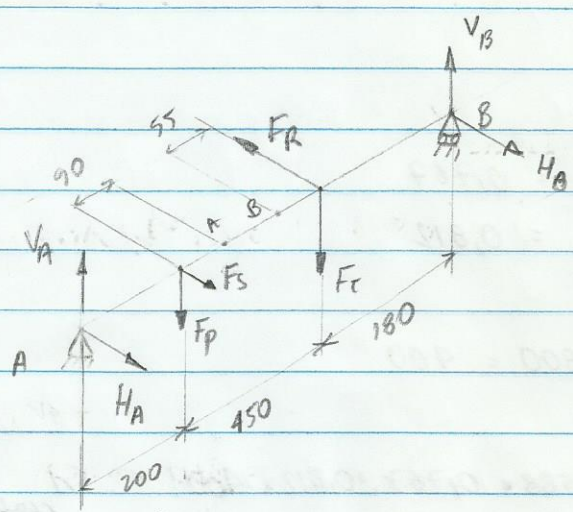 V_B
B
H_B
55
F_R
90
A
B
V_A
F_S
F_T
F_P
180
A
H_A
450
200